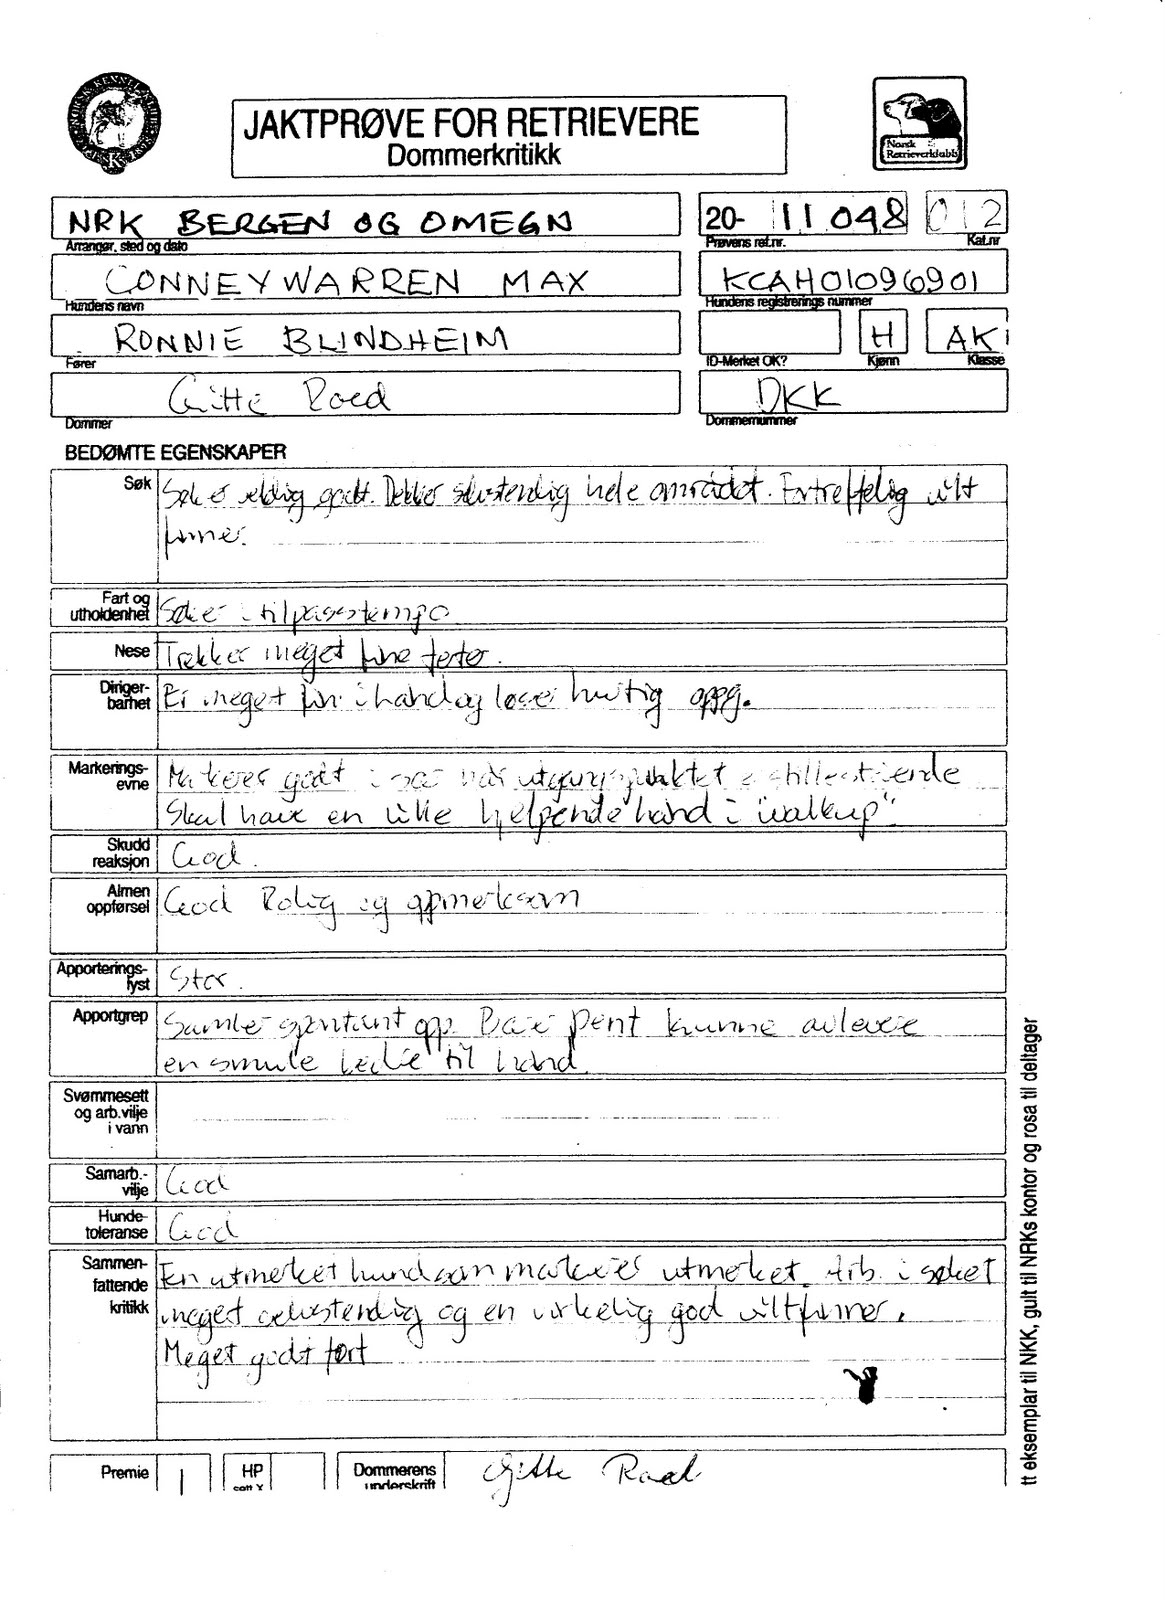 JAKTPRØVE FOR RETRIEVERE
Dommerkritikk
Norsk
Retrieverklubb
NRK BERGEN OG OMEGN
20- 11 048
012
Arrangør, sted og dato
Prøvens ref.nr.
Kat.nr
CONNEYWARREN MAX
KCAH01096901
Hundens navn
Hundens registrerings nummer
RONNIE BLINDHEIM
H
AK
Fører
ID-Merket OK?
Kjønn
Klasse
Gitte Roed
DKK
Dommer
Dommernummer
BEDØMTE EGENSKAPER
Søk
Søk er veldig godt. Dekker selvstendig hele området. Fortreffelig vilt
finner.
Fart og
utholdenhet
Søker i tilpasset tempo
Nese
Trekker meget fine ferter.
Diriger-
barhet
Er meget fin i hand og løser hurtig oppg.
Markerings-
evne
Markerer godt i når utgangspunktet er stillestående
Skal have en lille hjelpende hand i "walkup"
Skudd
reaksjon
God.
Almen
oppførsel
God Rolig og opmerksom
Apporterings-
lyst
Stor.
Apportgrep
Samler spontant opp. Bærer pent kunne avlevere
en smule bedre til hand.
Svømmesett
og arb.vilje
i vann
Samarb.-
vilje
God
Hunde-
toleranse
God
Sammen-
fattende
kritikk
En utmerket hund som markerer utmerket. Arb. i søket
meget selvstendig og en virkelig god viltfinner.
Meget godt ført
Premie
1
HP
sett X
Dommerens
underskrift
Gitte Roed
tt eksemplar til NKK, gult til NRKs kontor og rosa til deltager